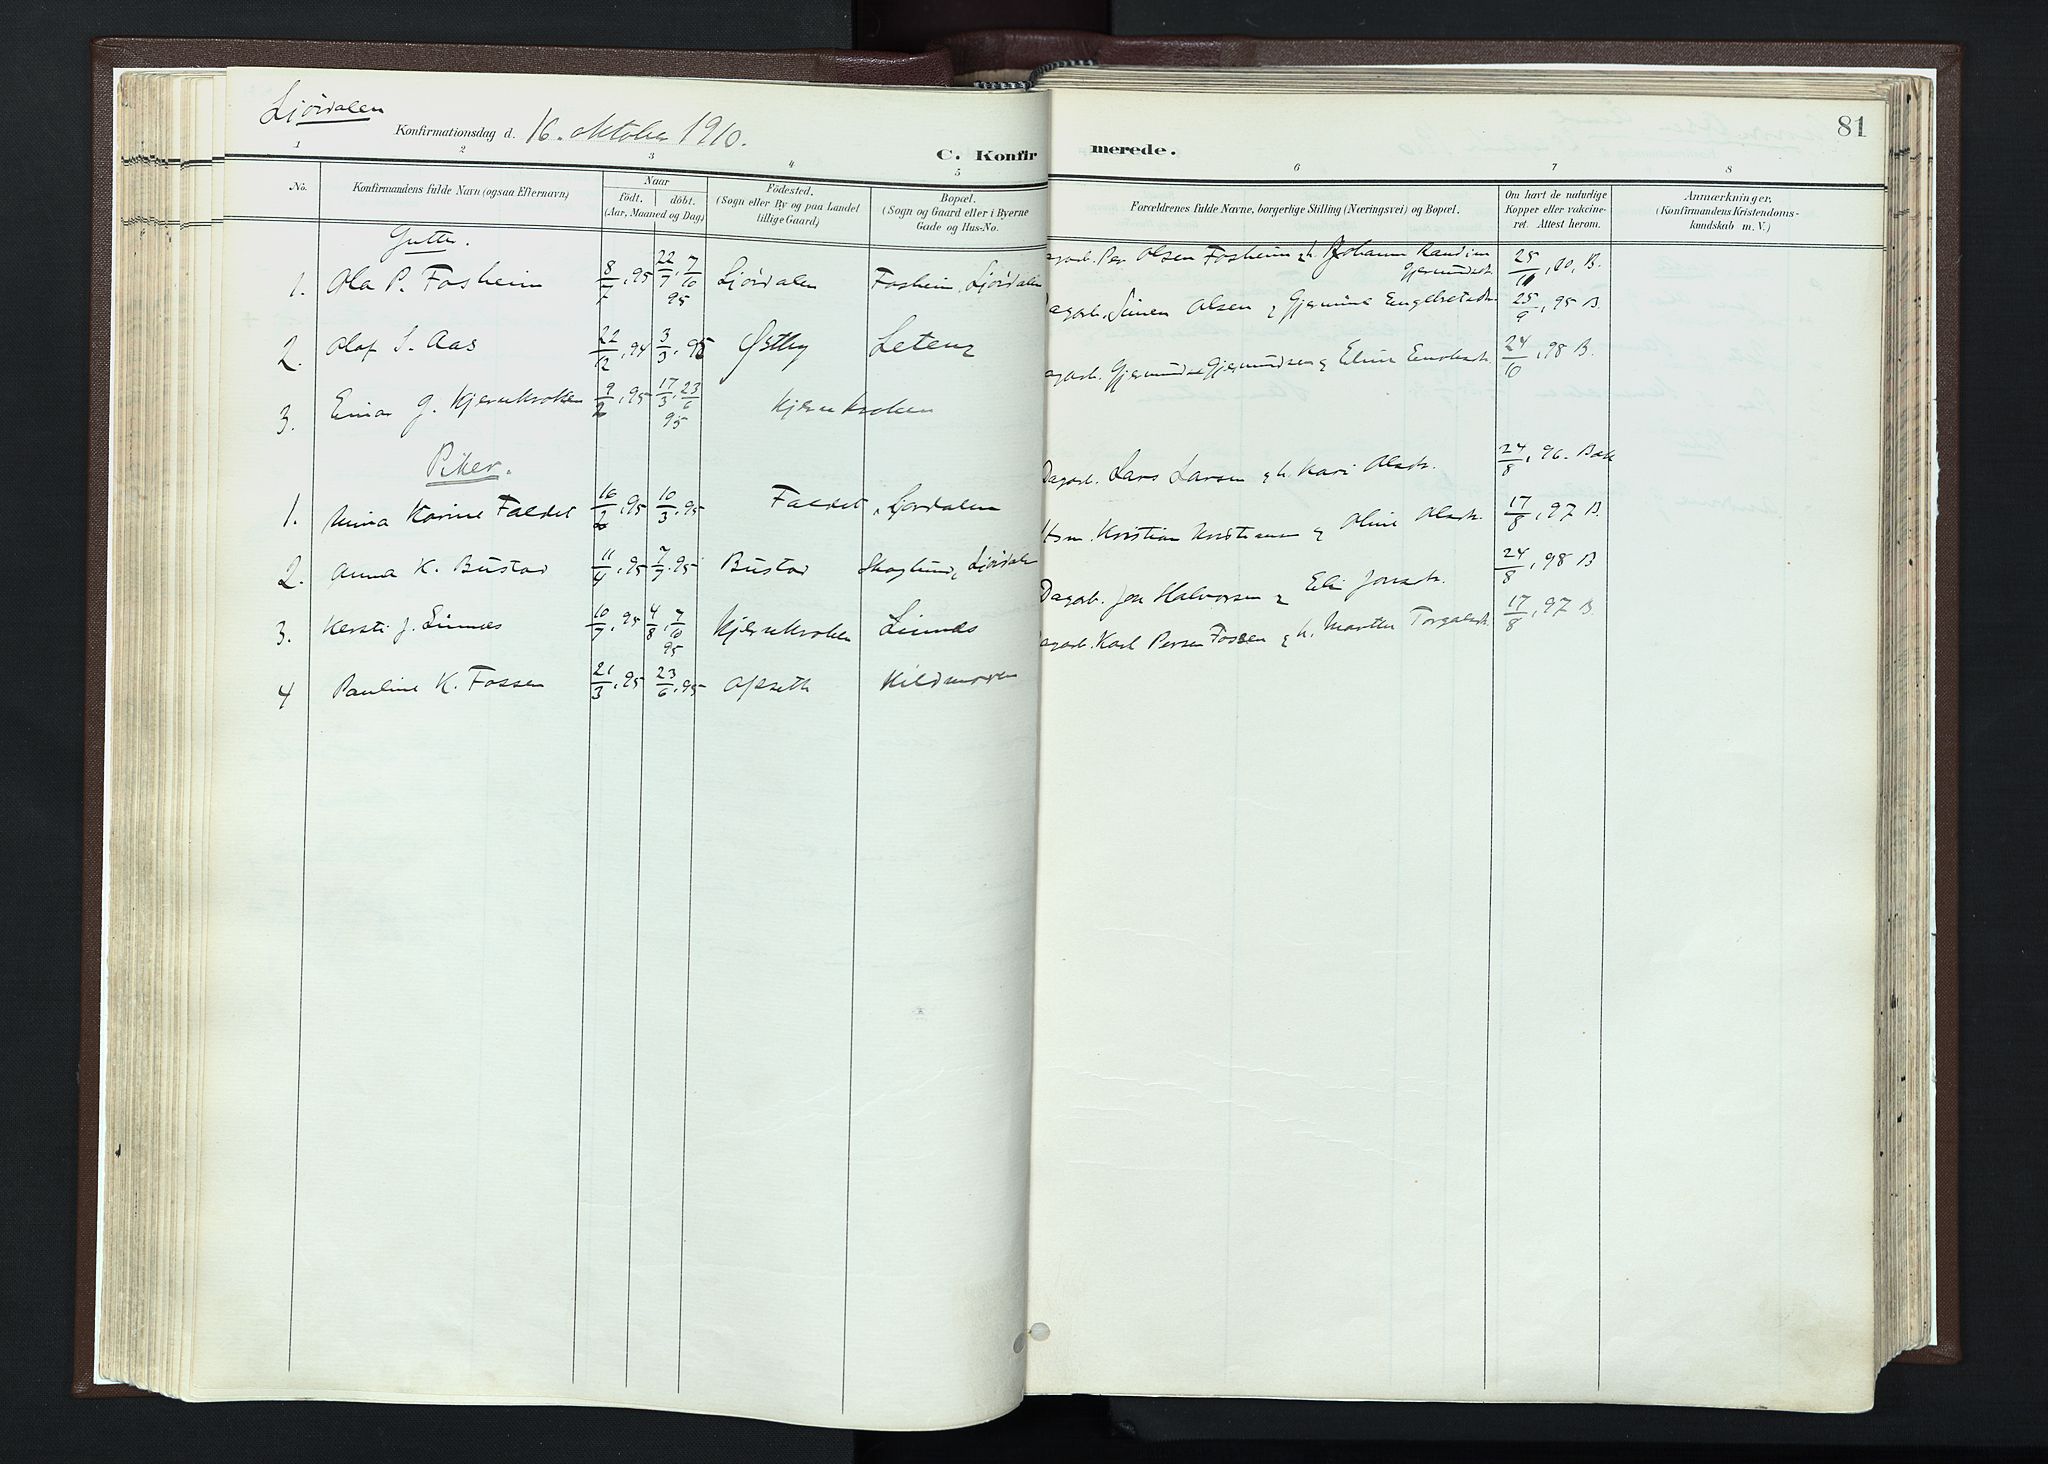 Ljørdalen
Konfirmationsdag d. 16. oktober 1910.
81
C. Konfirmerede.
1 2 3 4 5 6 7 8
No.
Konfirmandens fulde Navn (ogsaa Efternavn)
Naar
født. døbt.
(Aar, Maaned og Dag)
Fødested.
(Sogn eller By og paa Landet
tillige Gaard)
Bopæl.
(Sogn og Gaard eller i Byerne
Gade og Hus-No.
Forældrenes fulde Navne, borgerlige Stilling (Næringsvei) og Bopæl.
Om havt de naturlige
Kopper eller vakcine-
ret. Attest herom.
Anmærkninger,
(Konfirmandens Kristendoms-
kundskab m. V.)
Gutter.
1. Ola P. Fosheim 8/7, 95 22/7, 7/10 95 Ljørdalen Fosheim, Ljørdalen Per Olsen Fosheim h. Johanne Randine 25/, 00, B.
2. Olaf S. Aas 22/12, 94 3/3, 95 Østby Leteng Dagarb. Simen Olsen Engebretsdt. 25/9, 95 B.
3. Einar G. Kjernkroken 9/2, 95 17/3, 23/6 95 Kjernkroken Gjermundsen Eline 24/, 98 B.
Piker.
1. Karine Faldet 16/2, 95 10/3, 95 Faldet, Ljørdalen Dagarb. Lars Larsen h. Kari Olsdt. 24/8, 96. Bak
2. Anna K. Bustad 11/4, 95 7/7, 95 Bustad Skoglund, Ljørdalen Kristian Oline Olsdt. 17/8, 97 B.
3. Kersti J. Linnes 10/7, 95 4/8, 7/10 95 Kjernkroken Linnes Dagarb. Jon Halvorsen Eli Jonsdt. 24/8, 98 B
4 Pauline K. Fossen 21/3, 95 23/6, 95 Opseth Kildmoren Karl Persen Fossen h. Marthe 17/8, 97 B.